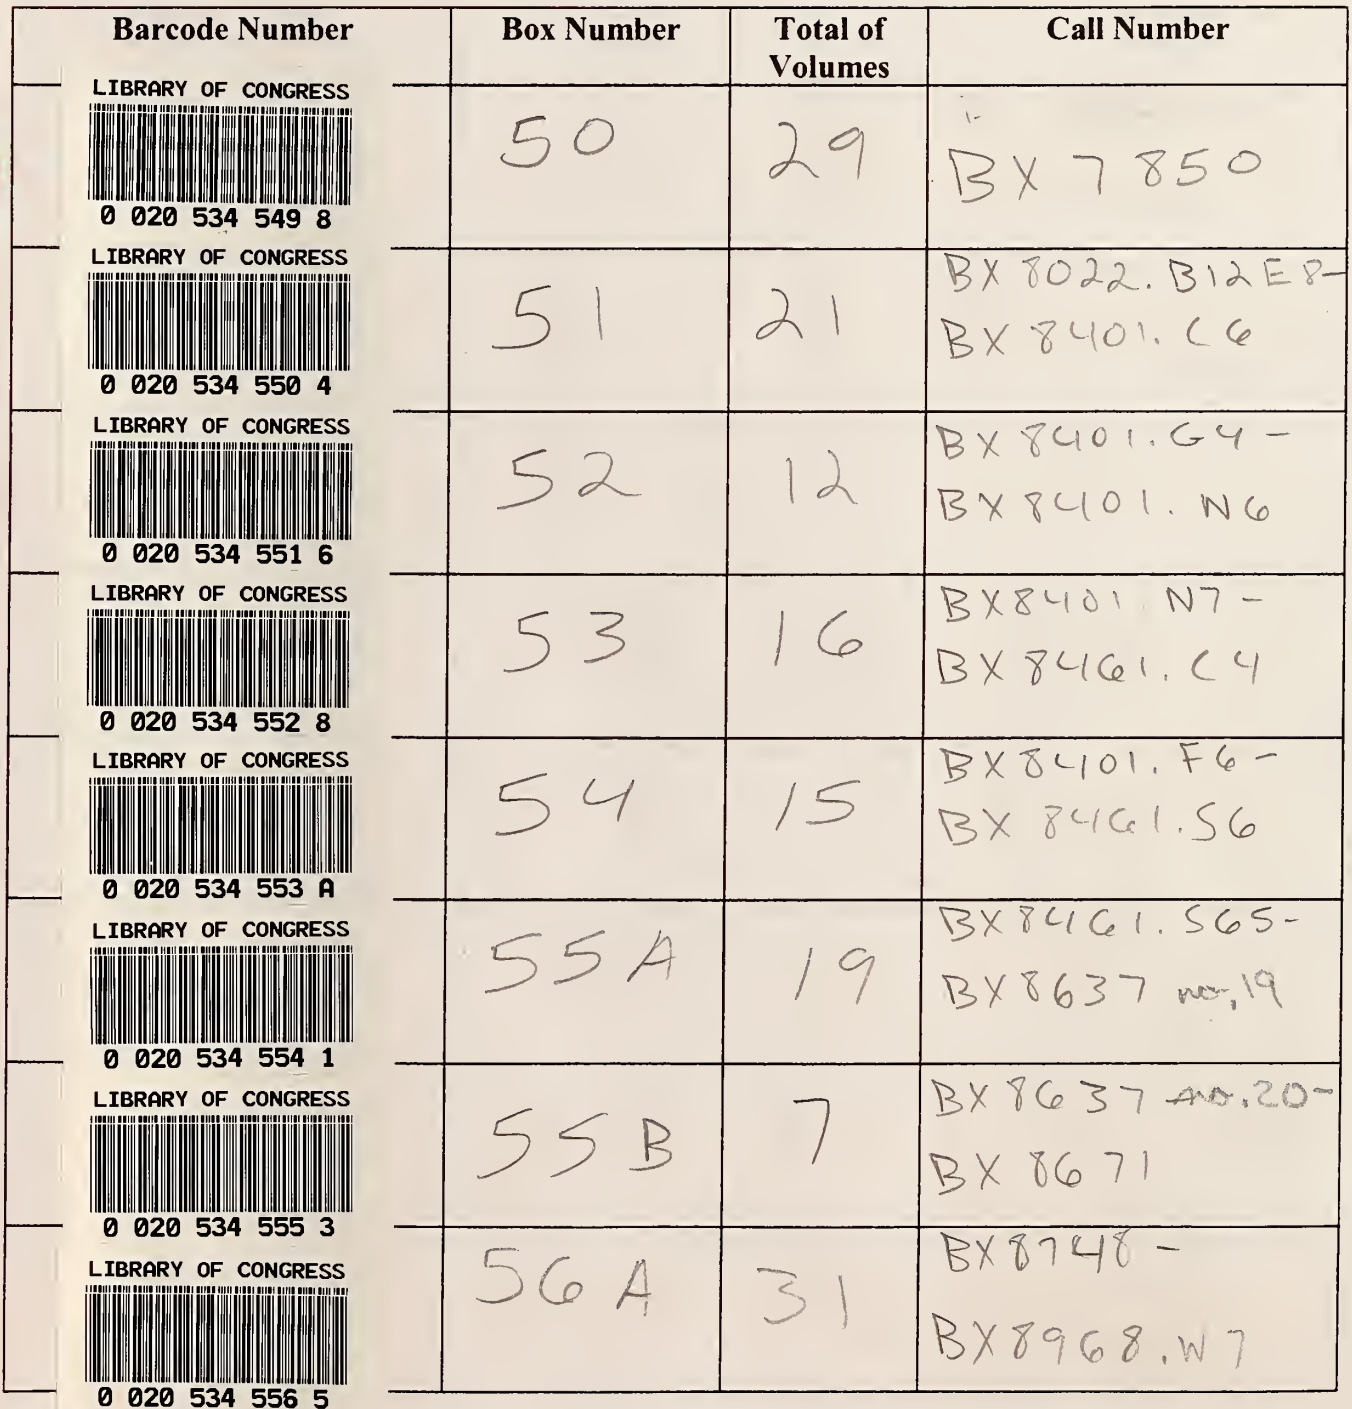 Barcode Number Box Number Total of Volumes Call Number
LIBRARY OF CONGRESS
0 020 534 549 8
50 29 BX 7850
LIBRARY OF CONGRESS
0 020 534 550 4
51 21 BX 8022. B12E8-
BX 8401. C6
LIBRARY OF CONGRESS
0 020 534 551 6
52 12 BX 8401. G4 -
BX 8401. N6
LIBRARY OF CONGRESS
0 020 534 552 8
53 16 BX8401 N7 -
BX 8461. C4
LIBRARY OF CONGRESS
0 020 534 553 A
54 15 BX8401. F6 -
BX 8461.S6
LIBRARY OF CONGRESS
0 020 534 554 1
55A 19 BX8461. S65-
BX8637 no. 19
LIBRARY OF CONGRESS
0 020 534 555 3
55B 7 BX 8637 no. 20-
BX 8671
LIBRARY OF CONGRESS
0 020 534 556 5
56A 31 BX8748 -
BX8968.W7